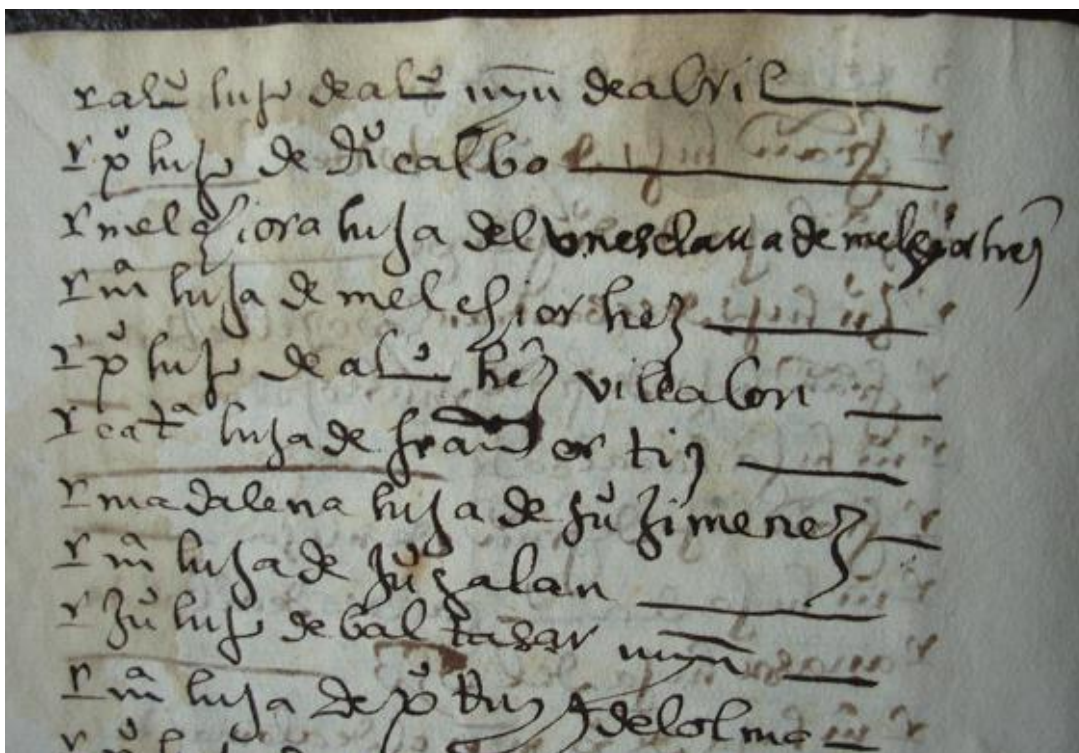 r alº hijo de alº myn de abril
r pº hijo de dº calbo
r melchiora hija del vn esclaua de melchior hrez
r mª hija de melchior hrez
r pº hijo de alº hrez villalon
r catª hija de franco ortiz
r madalena hija de juº ximenez
r mª hija de juº galan
r juº hijo de baltasar myn
r mª hija de pº delolmo